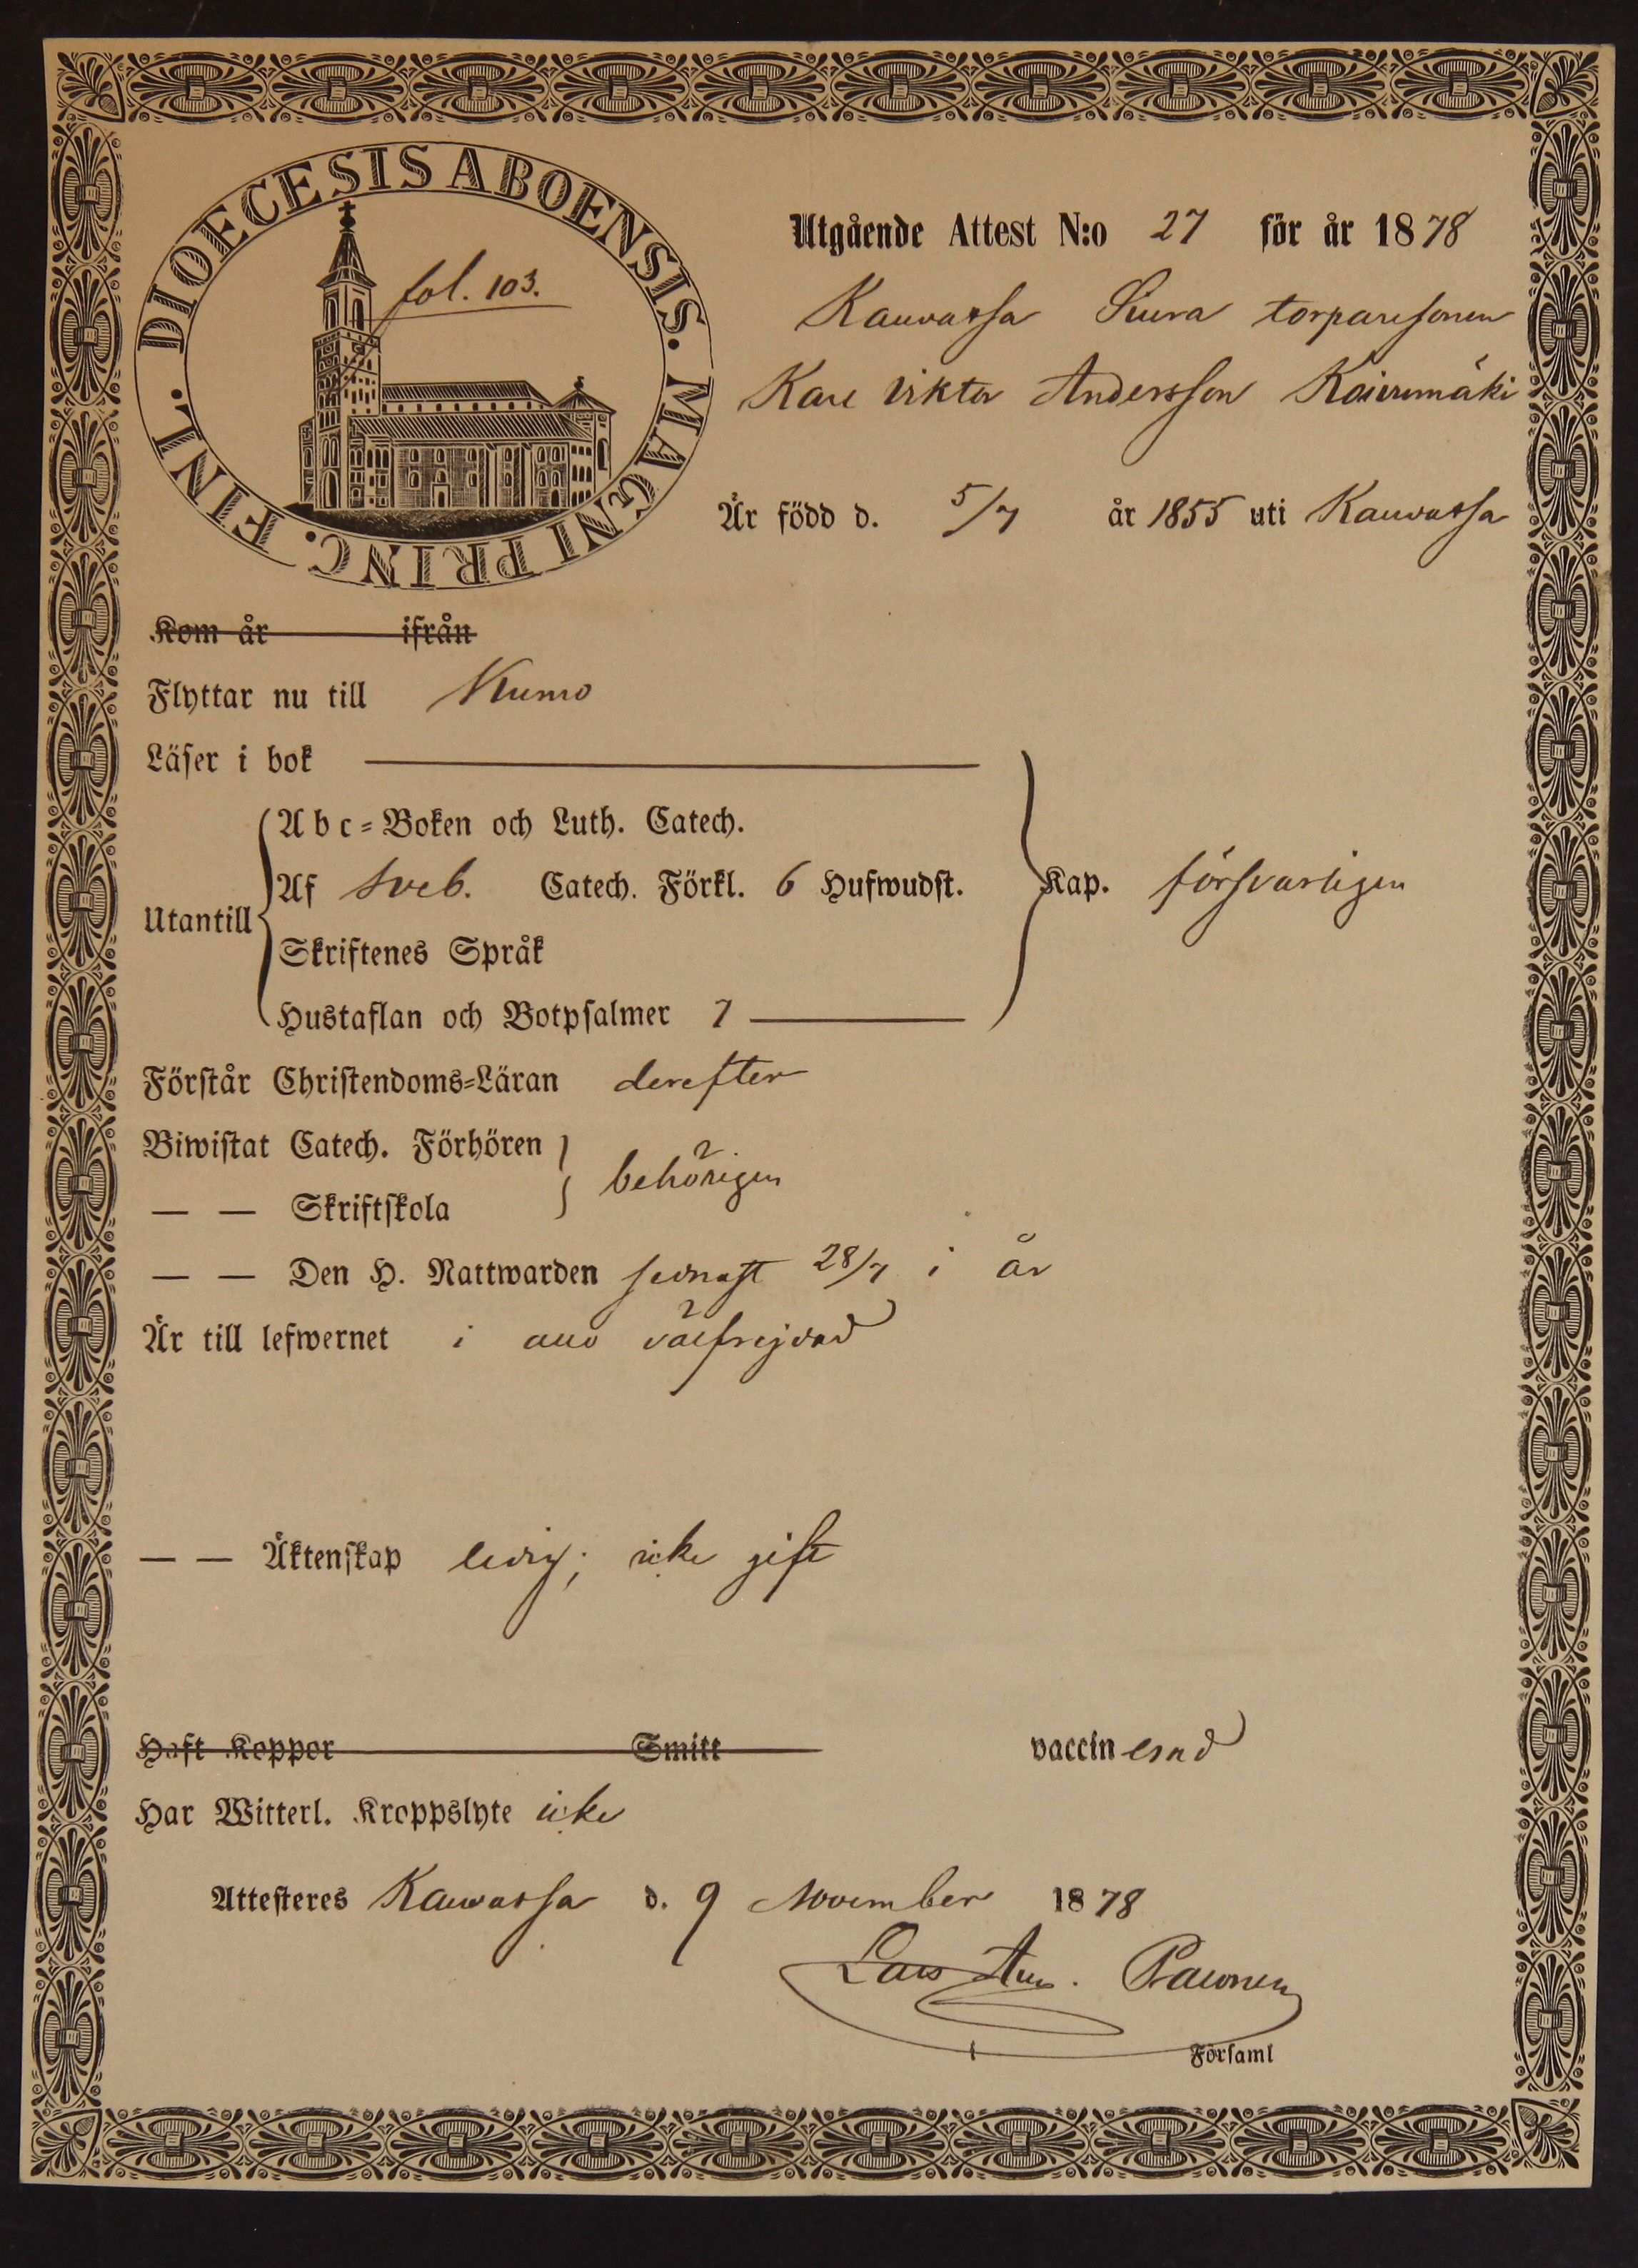 DIOECESIS ABOENSIS. MAGNI PRINC. FINL.
fol. 103.
Utgående Attest N:o 27 för år 1878
Kauvatsa torparesonen
Karl Viktor Andersson
Är född d. 5/7 år 1855 uti Kauvatsa
Kom år ifrån
Flyttar nu till Kumo
Läser i bok
Utantill
Abc-Boken och Luth. Catech.
Af Sveb. Catech. Förkl. 6 Hufwudst.
Skriftenes Språk
Hustaflan och Botpsalmer 7
Kap. försvarligen
Förstår Christendoms-Läran derefter
Biwistat Catech. Förhören
— — Skriftskola
behörigen
— — Den H. Nattwarden sednast 28/7 i år
Är till lefwernet i allo välfrejdad
— — Äktenskap ledig; icke gift
Haft Koppor Smitt vaccinerad
Har Witterl. Kroppslyte icke
Attesteres Kauvatsa d. 9 November 1878
Lars
Församl